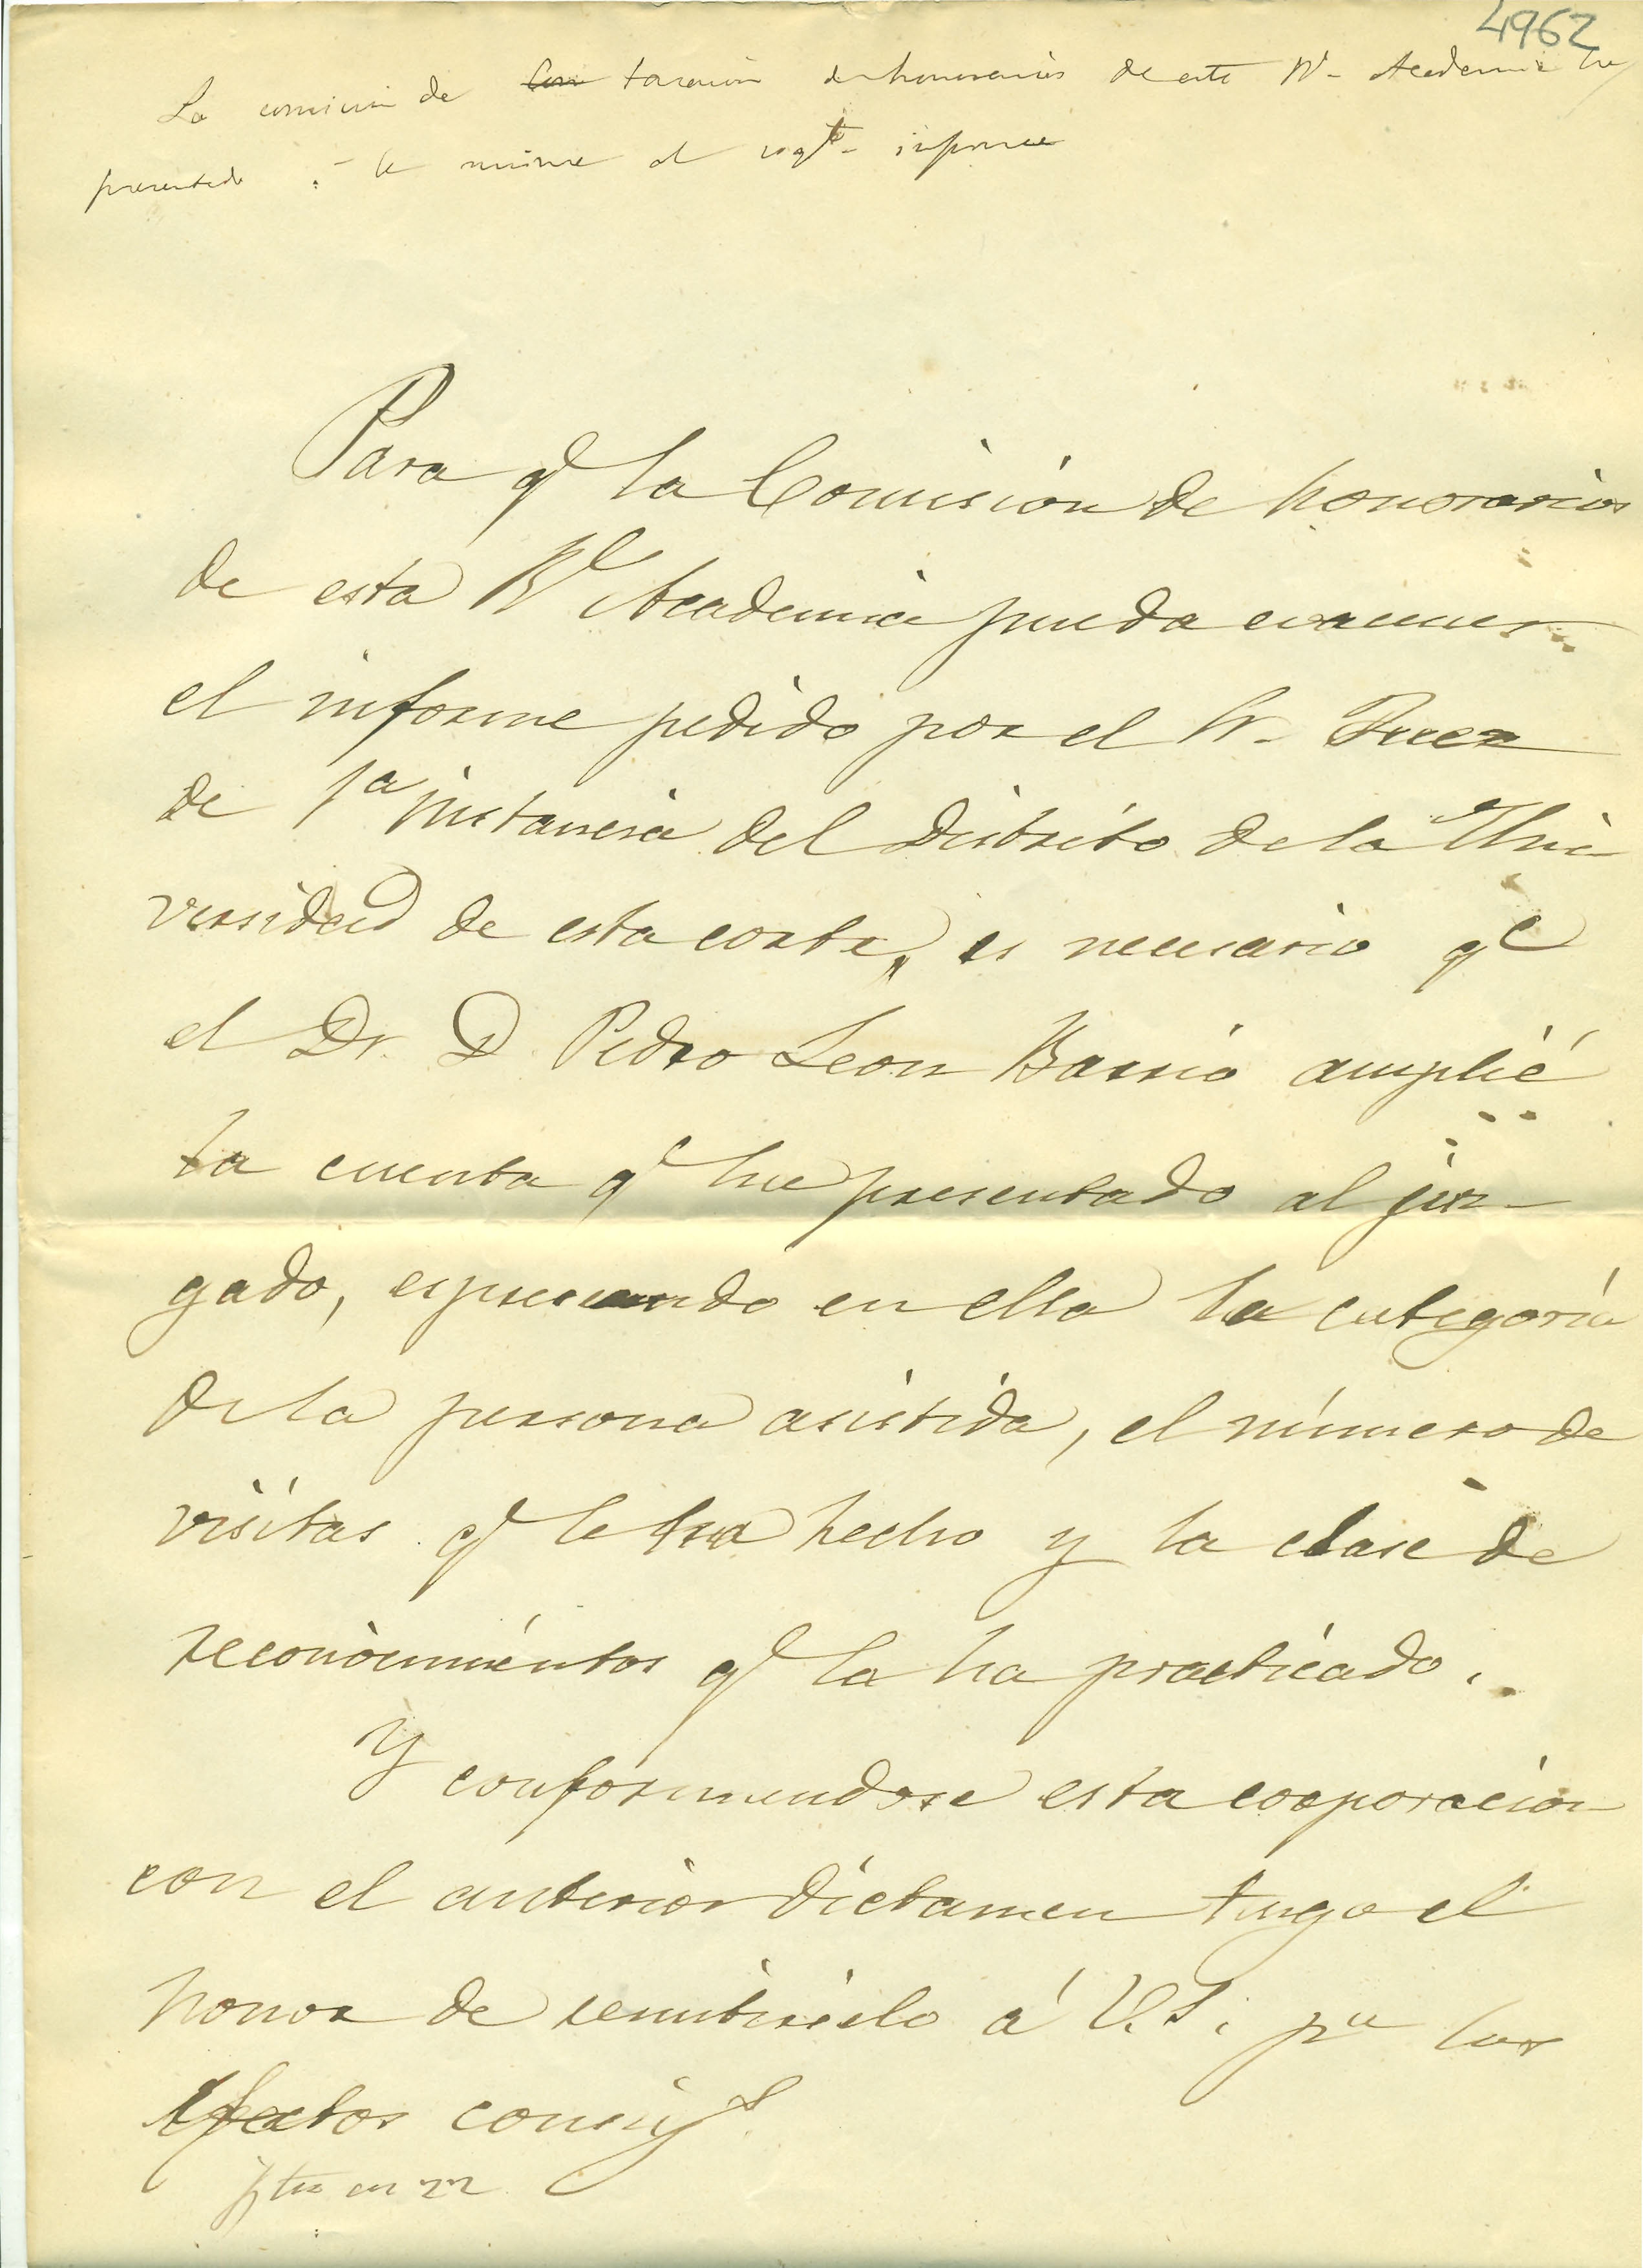 4962
La comision de tasacion de honorarios de esta Rl Academia ha
presentado á la misma el sigte informe
Para qe la Comision de honorarios
de esta Rl Academia pueda evacuar
el informe pedido por el Sr. Juez
de 1a instancia del Distrito de la Uni
versidad de esta corte, es necesario qe
el Dr. D. Pedro Leon Barrio amplié
la cuenta qe ha presentado al juz-
gado, espresando en ella la categoría
de la persona asistida, el número de
visitas qe le ha hecho y la clase de
reconocimientos qe la ha practicado.
Y conformandose esta corporacion
con el anterior dictamen tengo el
honor de remitirselo á V.S. pa los
efectos consigtes